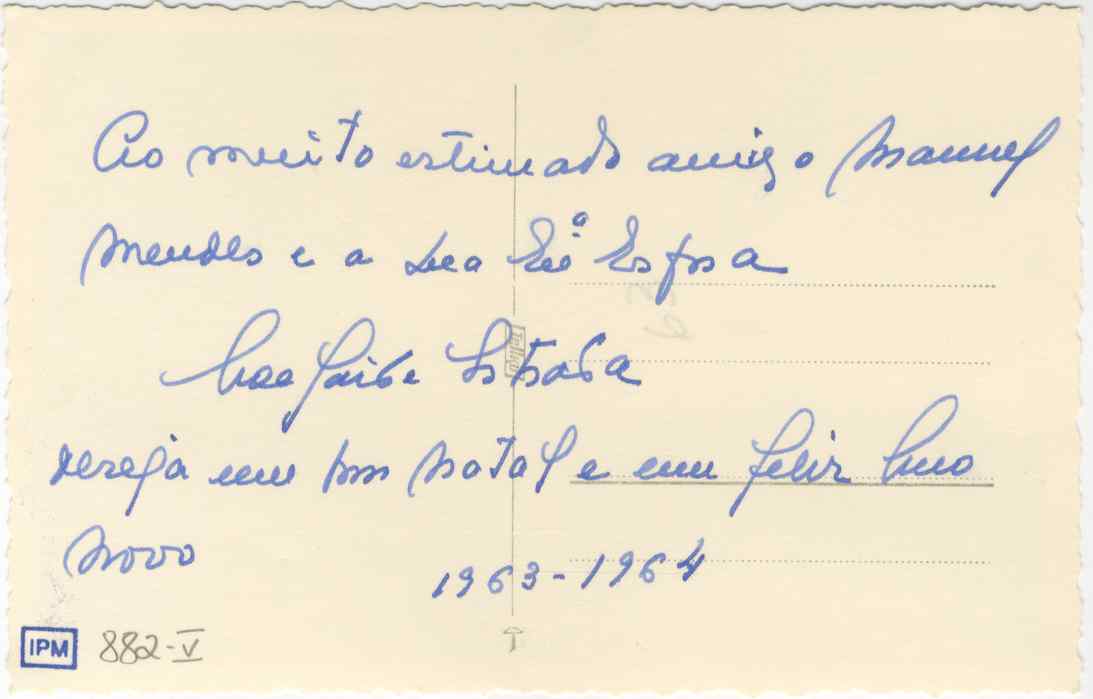 Ao muito estimado amigo Manuel
Mendes e a sua Exª Esposa
Estrada
deseja um bom Natal e um feliz Ano
Novo
1963-1964
IPM 882-V